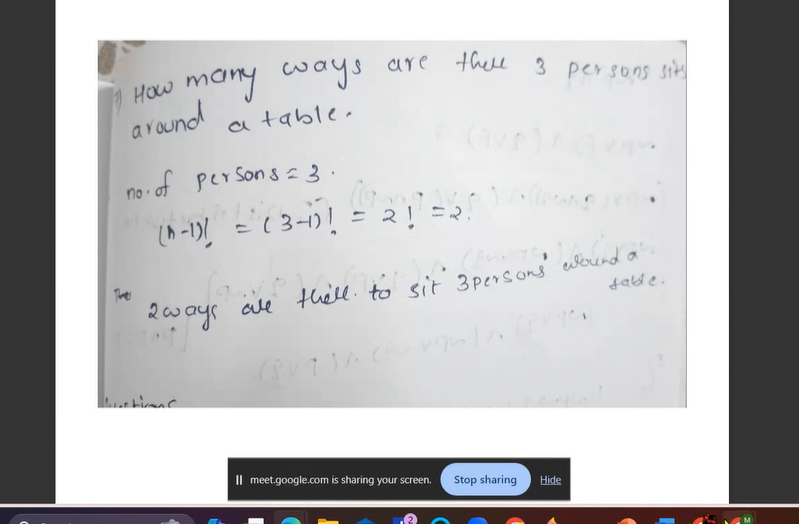 1) How many ways are there 3 persons sits
around a table.
no. of persons = 3.
(n-1)! = (3-1)! = 2! = 2.
The
2 ways are there to sit 3 persons around a
table.
meet.google.com is sharing your screen. Stop sharing Hide
2
M